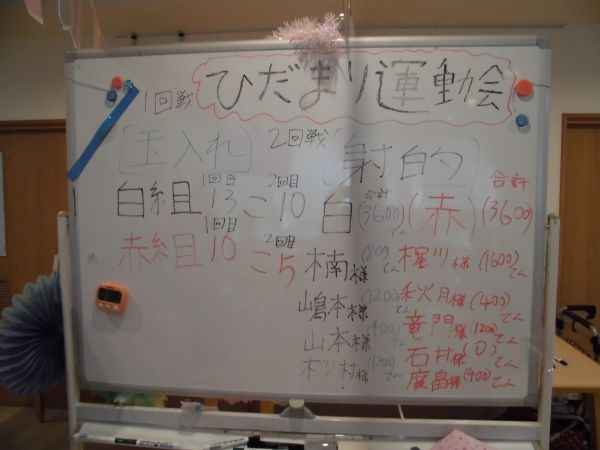 ひだまり運動会
1回戦
玉入れ
1回目 2回目
白組 13こ 10
1回目 2回目
赤組 10 こ5
2回戦
射的
合計 合計
白(3600)てん (赤)(3600)
楠様(800)てん 梶川様(1600)てん
嶋本様(1200)てん 秋月様(400)てん
山本様(400)てん 竜門様(1200)てん
村様(1200)てん 石井様(0)てん
様(400)てん